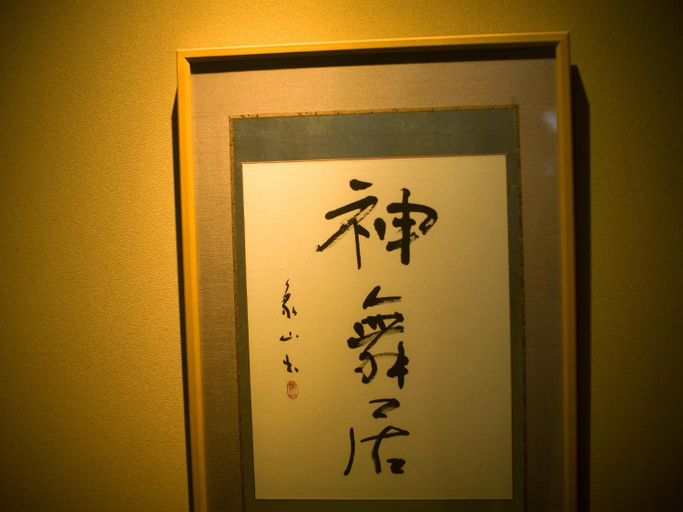 神舞居
象山書